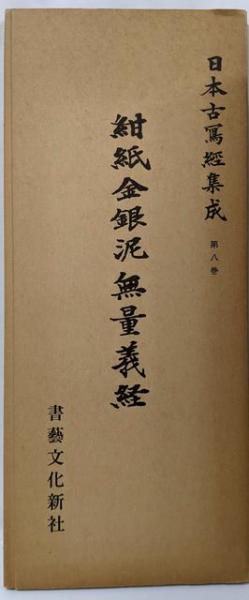 日本古寫經集成 第八巻
紺紙金銀泥無量義経
書藝文化新社